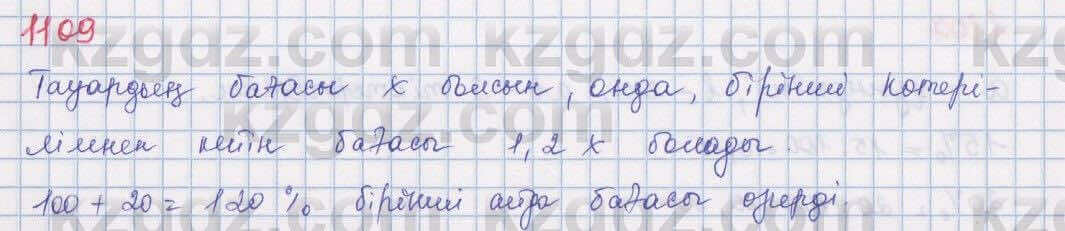 1109
Тауардың бағасы х болсын, онда, бірінші көтері-
лімнен кейін бағасы 1,2 х болады.
100 + 20 = 120 % бірінші айда бағасы өзгерді.